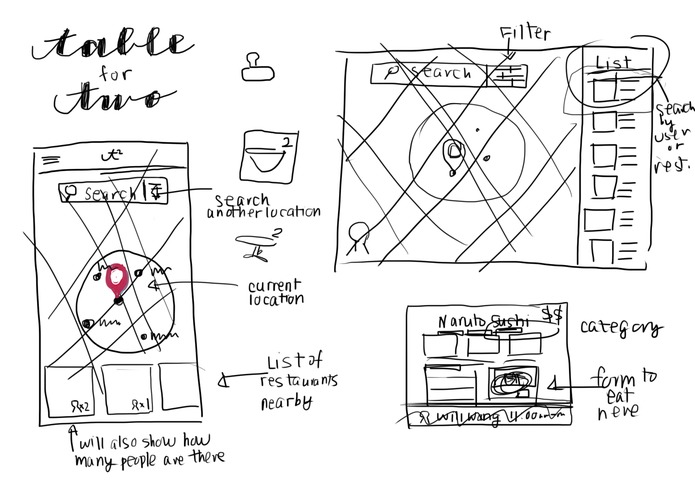 table
for
two
t²
search
search
another location
current
location
List of
restaurants
nearby
x2
x1
will also show how
many people are there
2
2
Filter
search
List
search
by
user
or
rest.
Naruto Sushi
$$
category
form to
eat
here